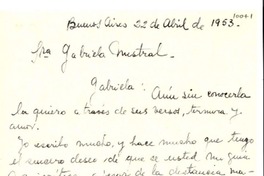 1004.1
Buenos Aires 22 de Abril de 1953.
Sra Gabriela Mistral.
Gabriela: Aún sin conocerla
la quiero a través de sus versos, ternura y
amor.
Yo escribo mucho, y hace mucho que tengo
el sincero deseo de que sea usted mi guía
a pesar de la distancia